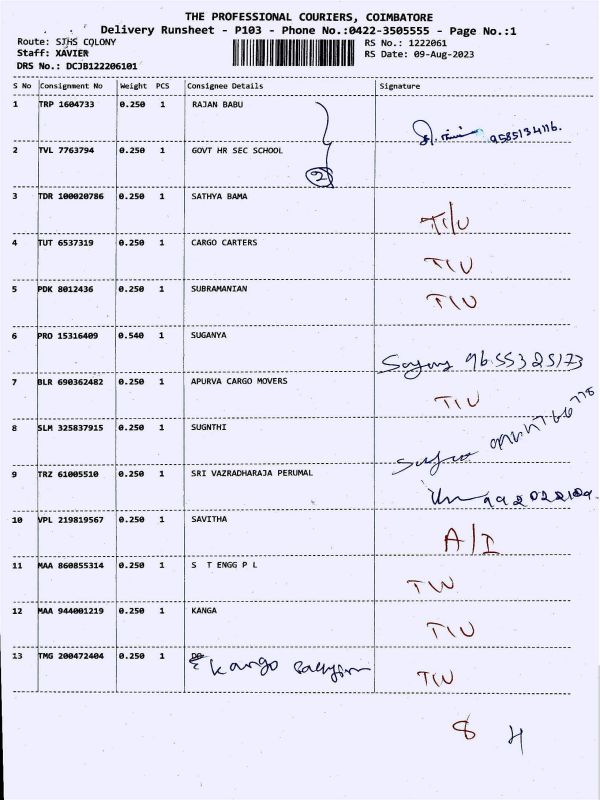 THE PROFESSIONAL COURIERS, COIMBATORE
Delivery Runsheet - P103 - Phone No.:0422-3505555 - Page No.:1
Route: SIHS COLONY RS No.: 1222061
Staff: XAVIER RS Date: 09-Aug-2023
DRS No.: DCJB122206101
S No Consignment No Weight PCS Consignee Details Signature
1 TRP 1604733 0.250 1 RAJAN BABU
9585134116.
2 TVL 7763794 0.250 1 GOVT HR SEC SCHOOL
2
3 TDR 100020786 0.250 1 SATHYA BAMA
T/U
4 TUT 6537319 0.250 1 CARGO CARTERS
TIU
5 PDK 8012436 0.250 1 SUBRAMANIAN
TIU
6 PRO 15316409 0.540 1 SUGANYA
9655325173
7 BLR 690362482 0.250 1 APURVA CARGO MOVERS
TIU
8 SLM 325837915 0.250 1 SUGNTHI
9 TRZ 61005510 0.250 1 SRI VAZRADHARAJA PERUMAL
10 VPL 219819567 0.250 1 SAVITHA
A/I
11 MAA 860855314 0.250 1 S T ENGG P L
TIU
12 MAA 944001219 0.250 1 KANGA
TIU
13 TMG 200472404 0.250 1
TIU
8 H